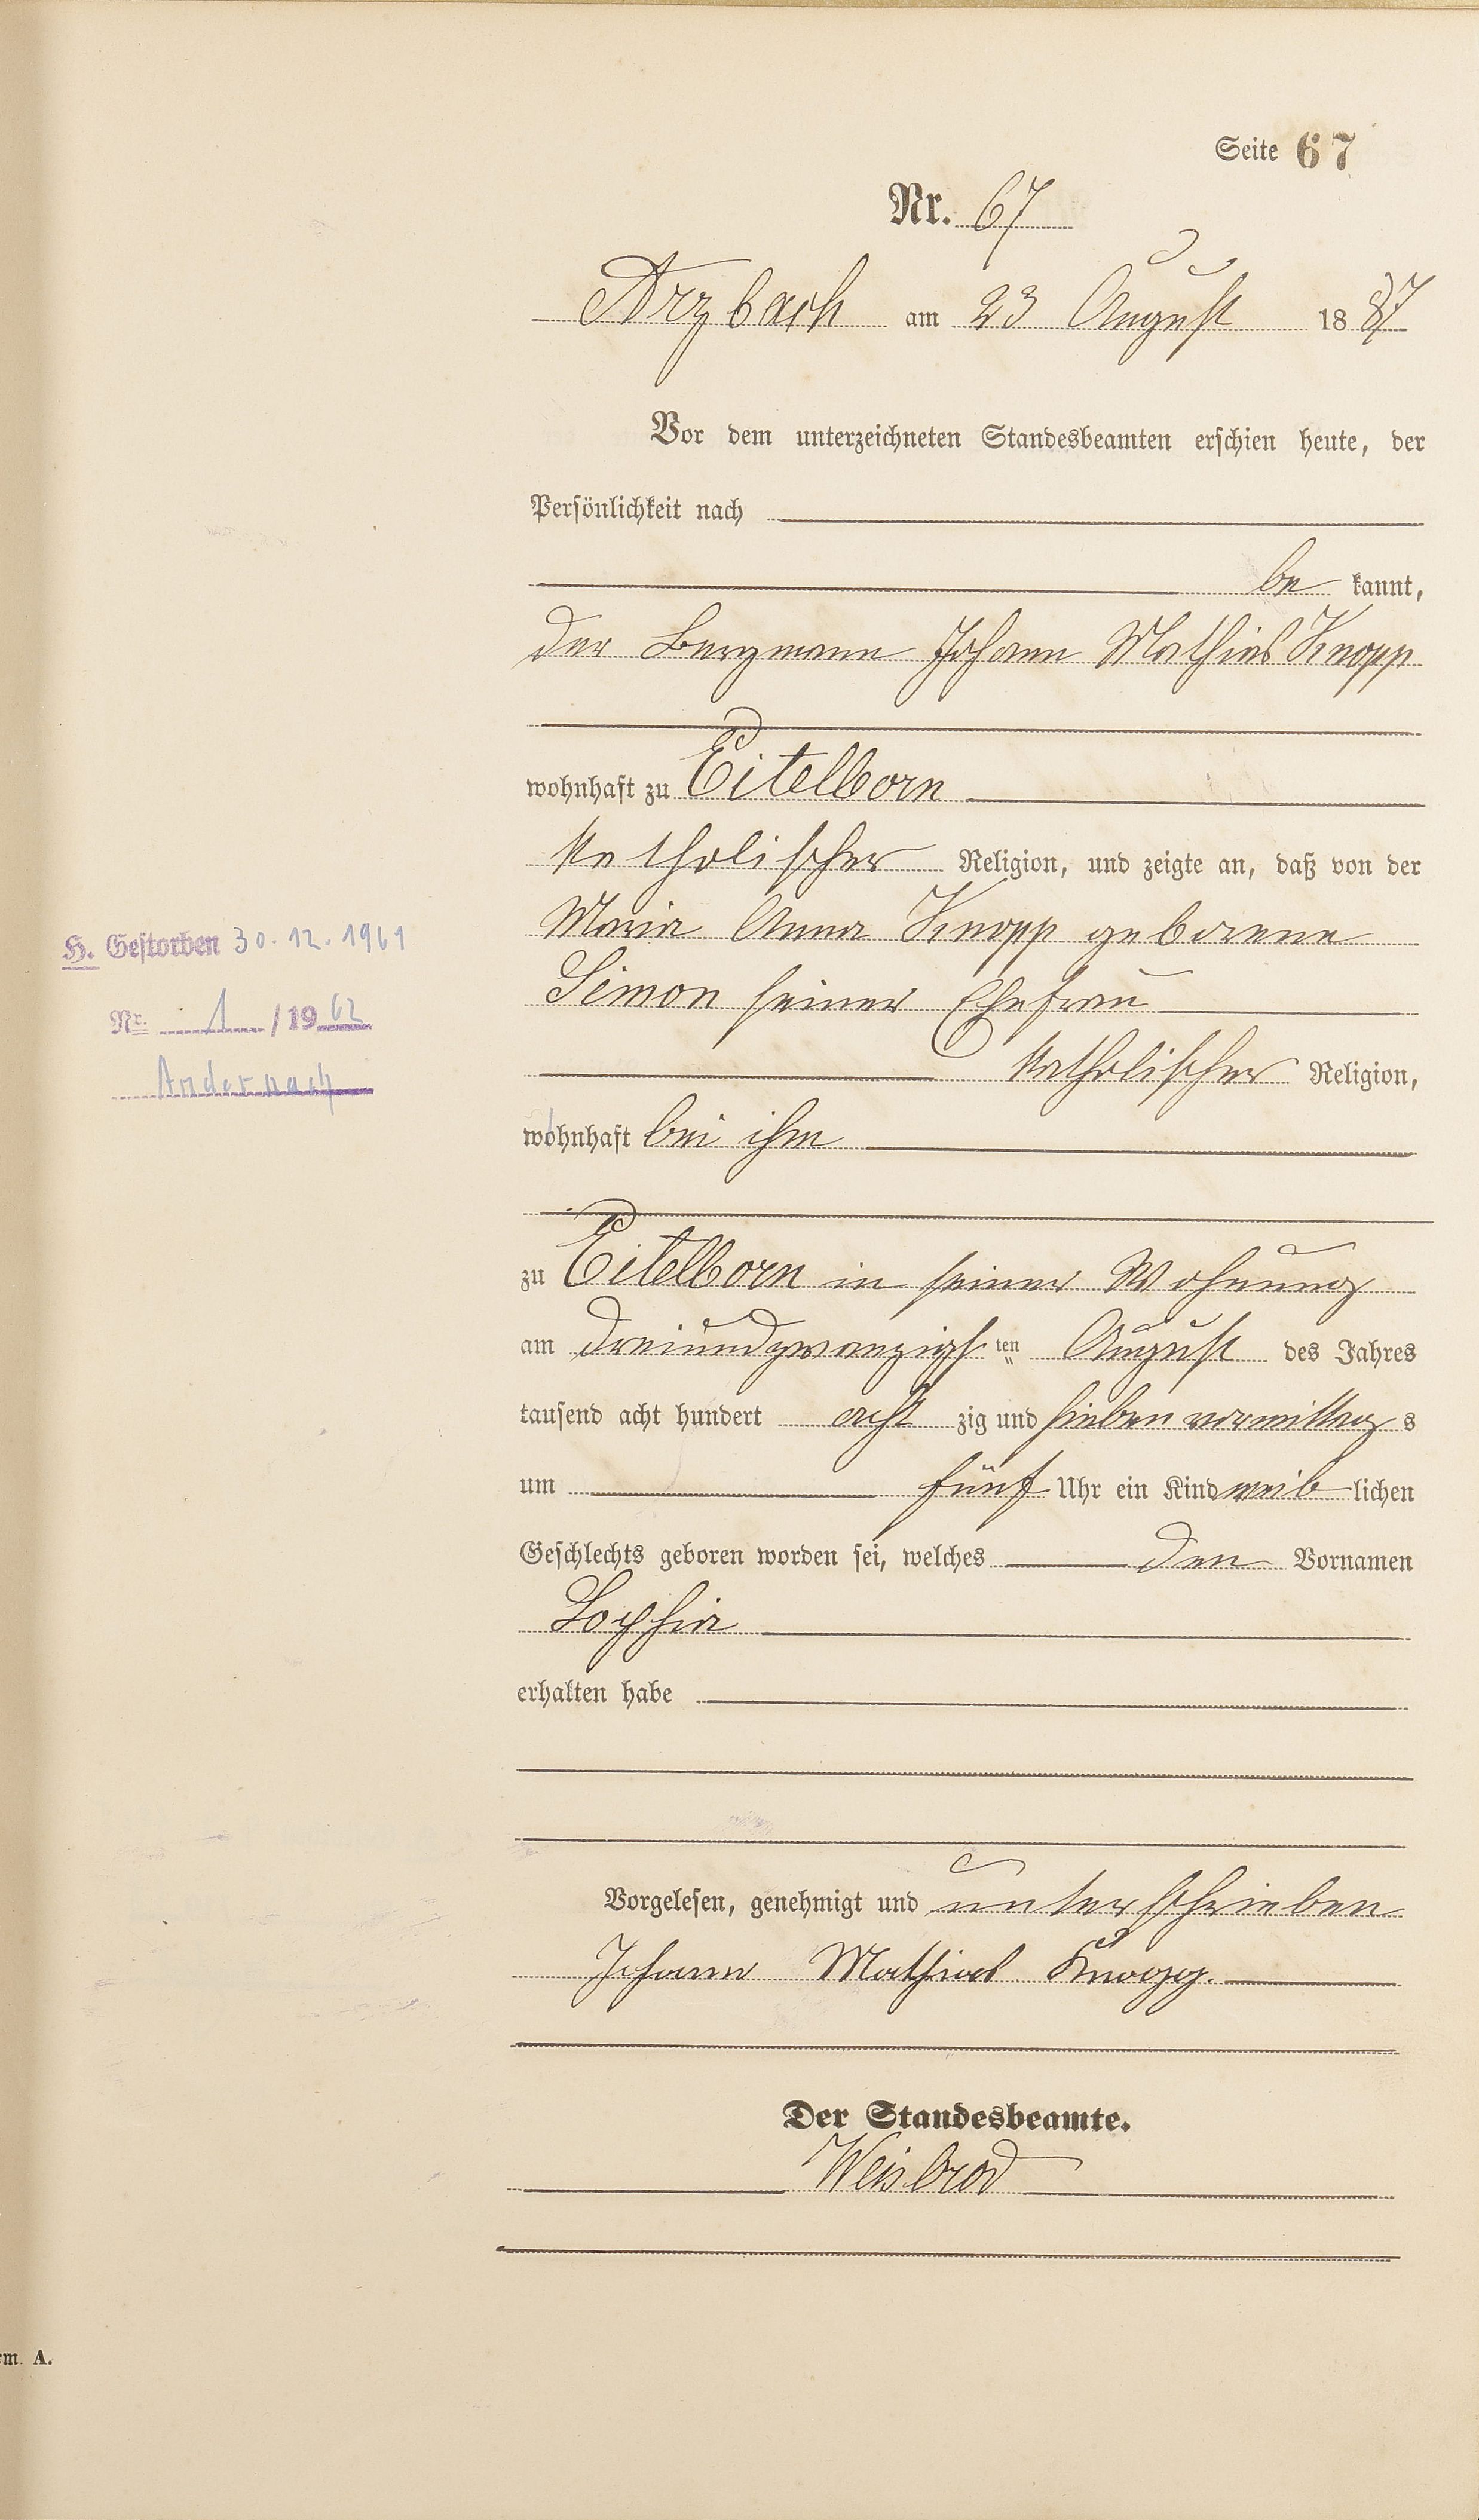 Seite 67
Nr. 67
Arzbach am 23 August 1887
Vor dem unterzeichneten Standesbeamten erschien heute, der
Persönlichkeit nach
be kannt,
der Bergmann Johann Mathias Knopp
wohnhaft zu Eitelborn
katholischer Religion, und zeigte an, daß von der
Maria Anna Knopp geborene
Simon seiner Ehefrau
katholischer Religion,
wohnhaft bei ihm
zu Eitelborn in seiner Wohnung
am dreiundzwanzigsten August des Jahres
tausend acht hundert acht zig und sieben vormittag s
um fünf Uhr ein Kind weib lichen
Geschlechts geboren worden sei, welches den Vornamen
Sophia
erhalten habe
Vorgelesen, genehmigt und unterschrieben
Johann Mathias Knopp.
Der Standesbeamte.
Weisbrod
H. Gestorben 30.12.1961
Nr. 1 / 1962
Andernach
rm. A.